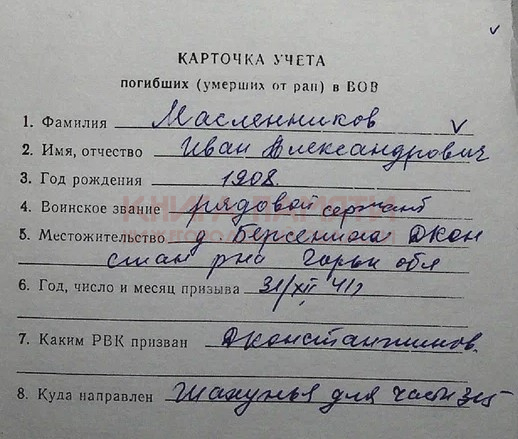 КАРТОЧКА УЧЕТА
погибших (умерших от ран) в ВОВ
1. Фамилия Масленников
2. Имя, отчество Иван Александрович
3. Год рождения 1908
4. Воинское звание рядовой сержант
5. Местожительство д. Берсениха Дкон
стан рна Горьк обл
6. Год, число и месяц призыва 31/XII 41г
7. Каким РВК призван Дконстантинов.
8. Куда направлен Шахунья для части 315
КНИГА ПАМЯТИ